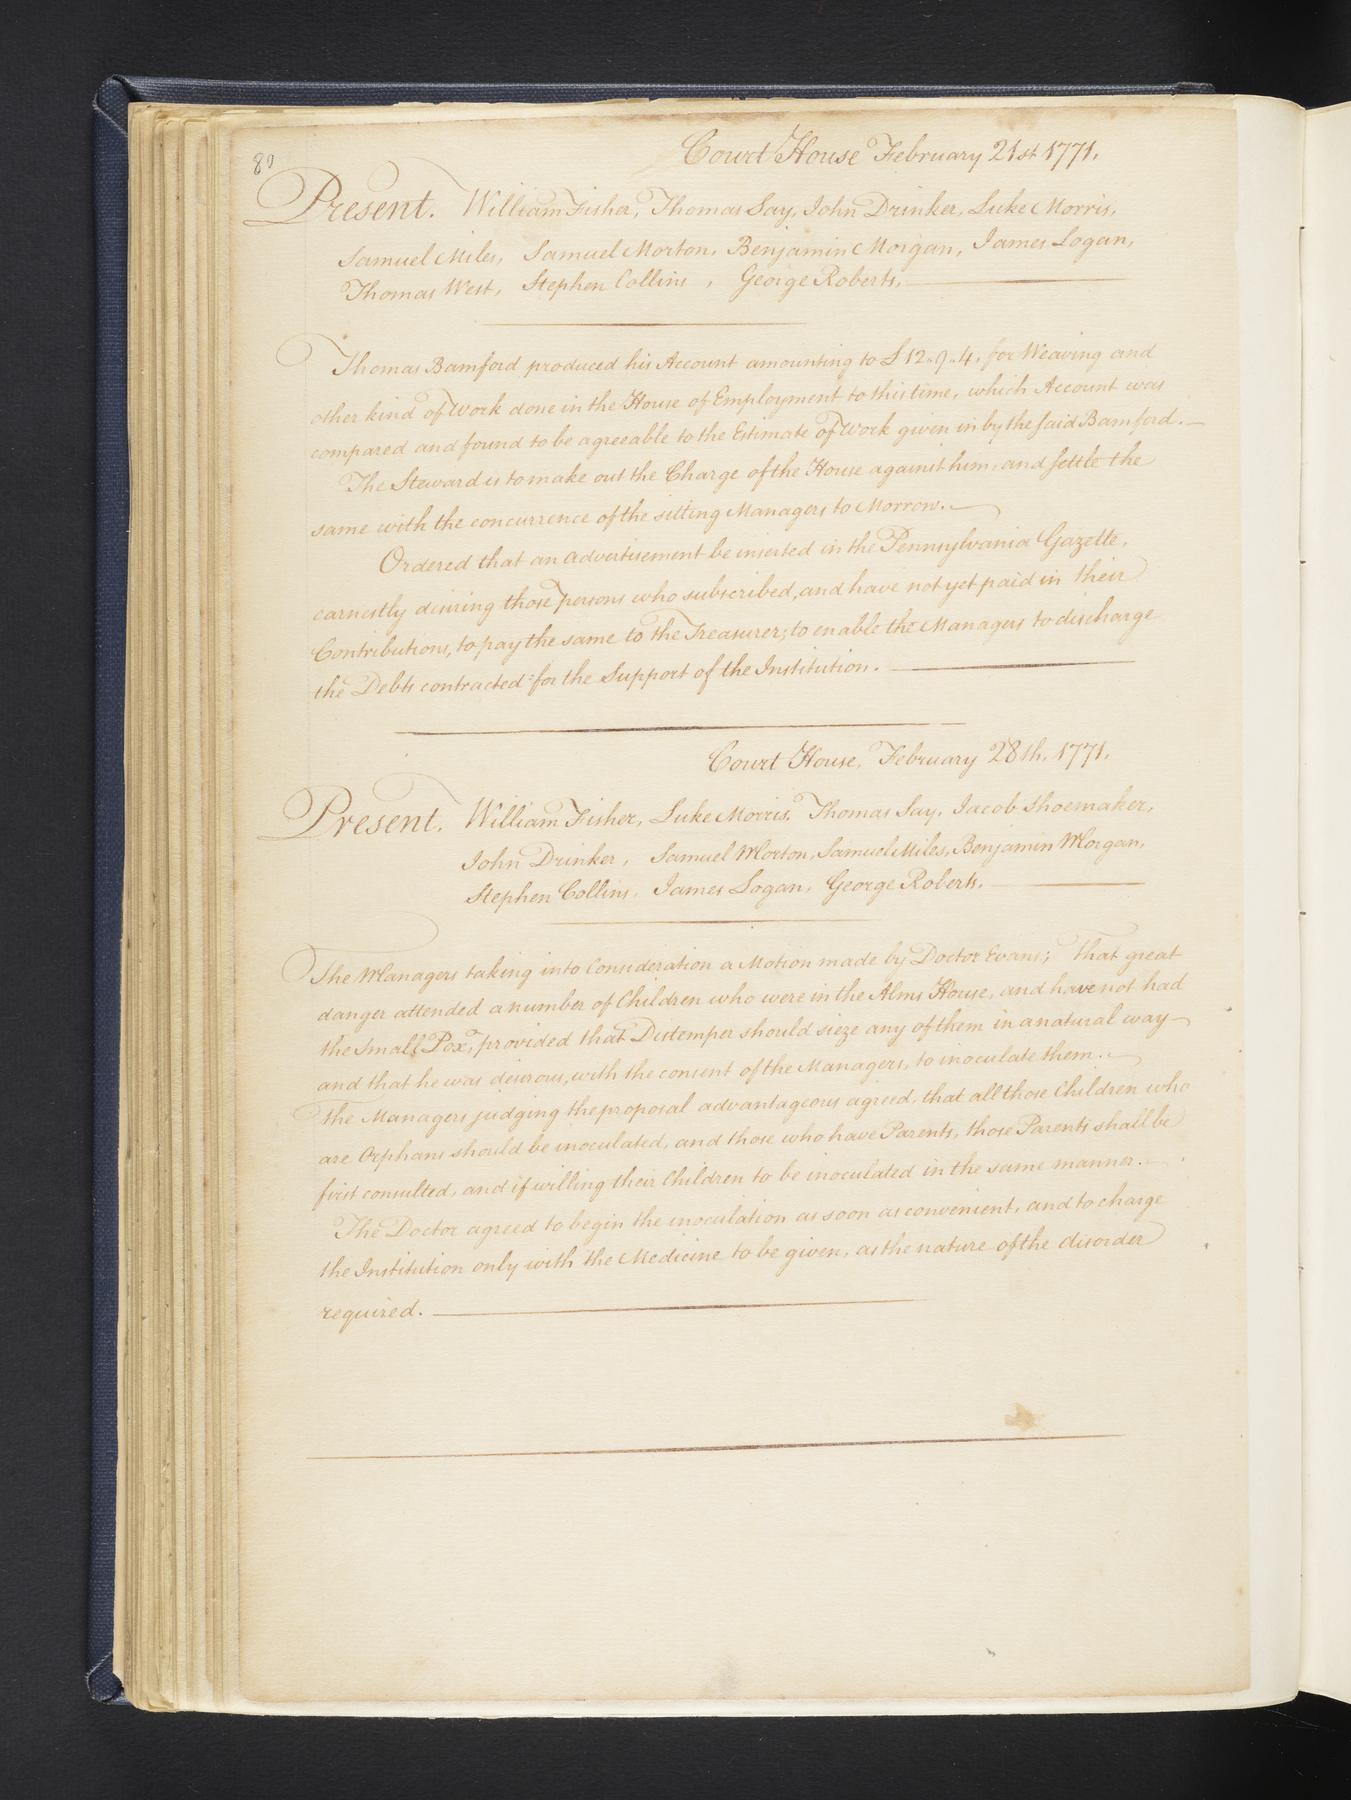 80
Court House February 21st 1771.
Present. William Fisher, Thomas Say, John Drinker, Luke Morris,
Samuel Miles, Samuel Morton, Benjamin Morgan, James Logan,
Thomas West, Stephen Collins, George Roberts.
Thomas Bamford produced his Account amounting to £12..9..4, for Weaving and
other kind of Work done in the House of Employment to this time, which Account was
compared and found to be agreeable to the Estimate of Work given in by the said Bamford.—
The Steward is to make out the Charge of the House against him, and settle the
same with the concurrence of the sitting Managers to Morrow.—
Ordered that an advertisement be inserted in the Pennsylvania Gazette,
earnestly desiring those persons who subscribed, and have not yet paid in their
Contributions, to pay the same to the Treasurer; to enable the Managers to discharge
the Debts contracted for the Support of the Institution.
Court House, February 28th. 1771.
Present. William Fisher, Luke Morris, Thomas Say, Jacob Shoemaker,
John Drinker, Samuel Morton, Samuel Miles, Benjamin Morgan,
Stephen Collins, James Logan, George Roberts.
The Managers taking into Consideration a Motion made by Doctor Evans; That great
danger attended a number of Children who were in the Alms House, and have not had
the Small Pox, provided that Distemper should sieze any of them in a natural way—
and that he was desirous, with the consent of the Managers, to inoculate them.—
The Managers judging the proposal advantageous agreed, that all those Children who
are Orphans should be inoculated, and those who have Parents, those Parents shall be
first consulted, and if willing their Children to be inoculated in the same manner.—
The Doctor agreed to begin the inoculation as soon as convenient, and to charge
the Institution only with the Medicine to be given, as the nature of the disorder
required.